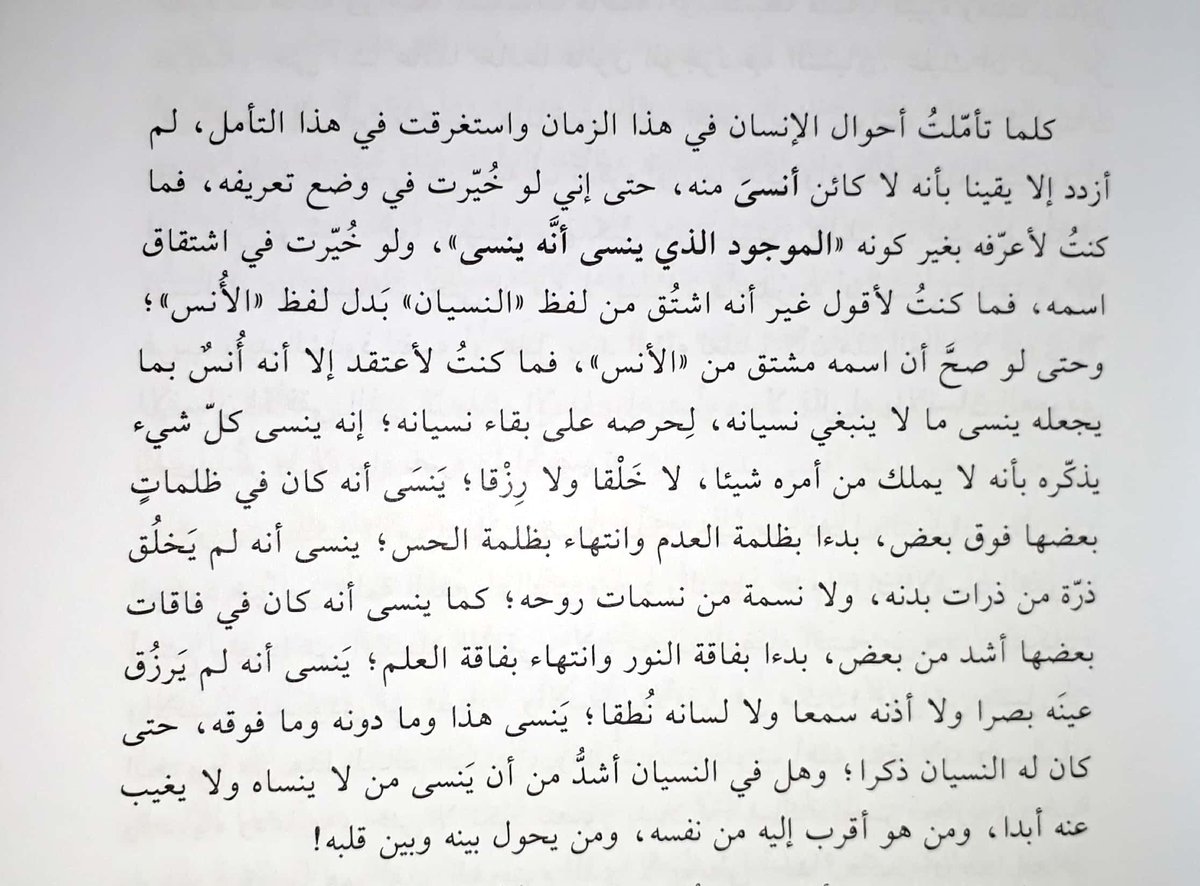 كلما تأمّلتُ أحوال الإنسان في هذا الزمان واستغرقت في هذا التأمل، لم
أزدد إلا يقينا بأنه لا كائن أنسىَ منه، حتى إني لو خُيّرت في وضع تعريفه، فما
كنتُ لأعرّفه بغير كونه «الموجود الذي ينسى أنَّه ينسى»، ولو خُيّرت في اشتقاق
اسمه، فما كنتُ لأقول غير أنه اشتُق من لفظ «النسيان» بَدل لفظ «الأُنس»؛
وحتى لو صحَّ أن اسمه مشتق من «الأنس»، فما كنتُ لأعتقد إلا أنه أُنسٌ بما
يجعله ينسى ما لا ينبغي نسيانه، لِحرصه على بقاء نسيانه؛ إنه ينسى كلّ شيء
يذكّره بأنه لا يملك من أمره شيئا، لا خَلْقا ولا رِزْقا؛ يَنسَى أنه كان في ظلماتٍ
بعضها فوق بعض، بدءا بظلمة العدم وانتهاء بظلمة الحس؛ ينسى أنه لم يَخلُق
ذرّة من ذرات بدنه، ولا نسمة من نسمات روحه؛ كما ينسى أنه كان في فاقات
بعضها أشد من بعض، بدءا بفاقة النور وانتهاء بفاقة العلم؛ يَنسى أنه لم يَرزُق
عينَه بصرا ولا أذنه سمعا ولا لسانه نُطقا؛ يَنسى هذا وما دونه وما فوقه، حتى
كان له النسيان ذكرا؛ وهل في النسيان أشدُّ من أن يَنسى من لا ينساه ولا يغيب
عنه أبدا، ومن هو أقرب إليه من نفسه، ومن يحول بينه وبين قلبه!